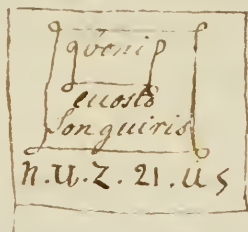 qvenip
euosto
Songuiris
n.U.Z.21.US